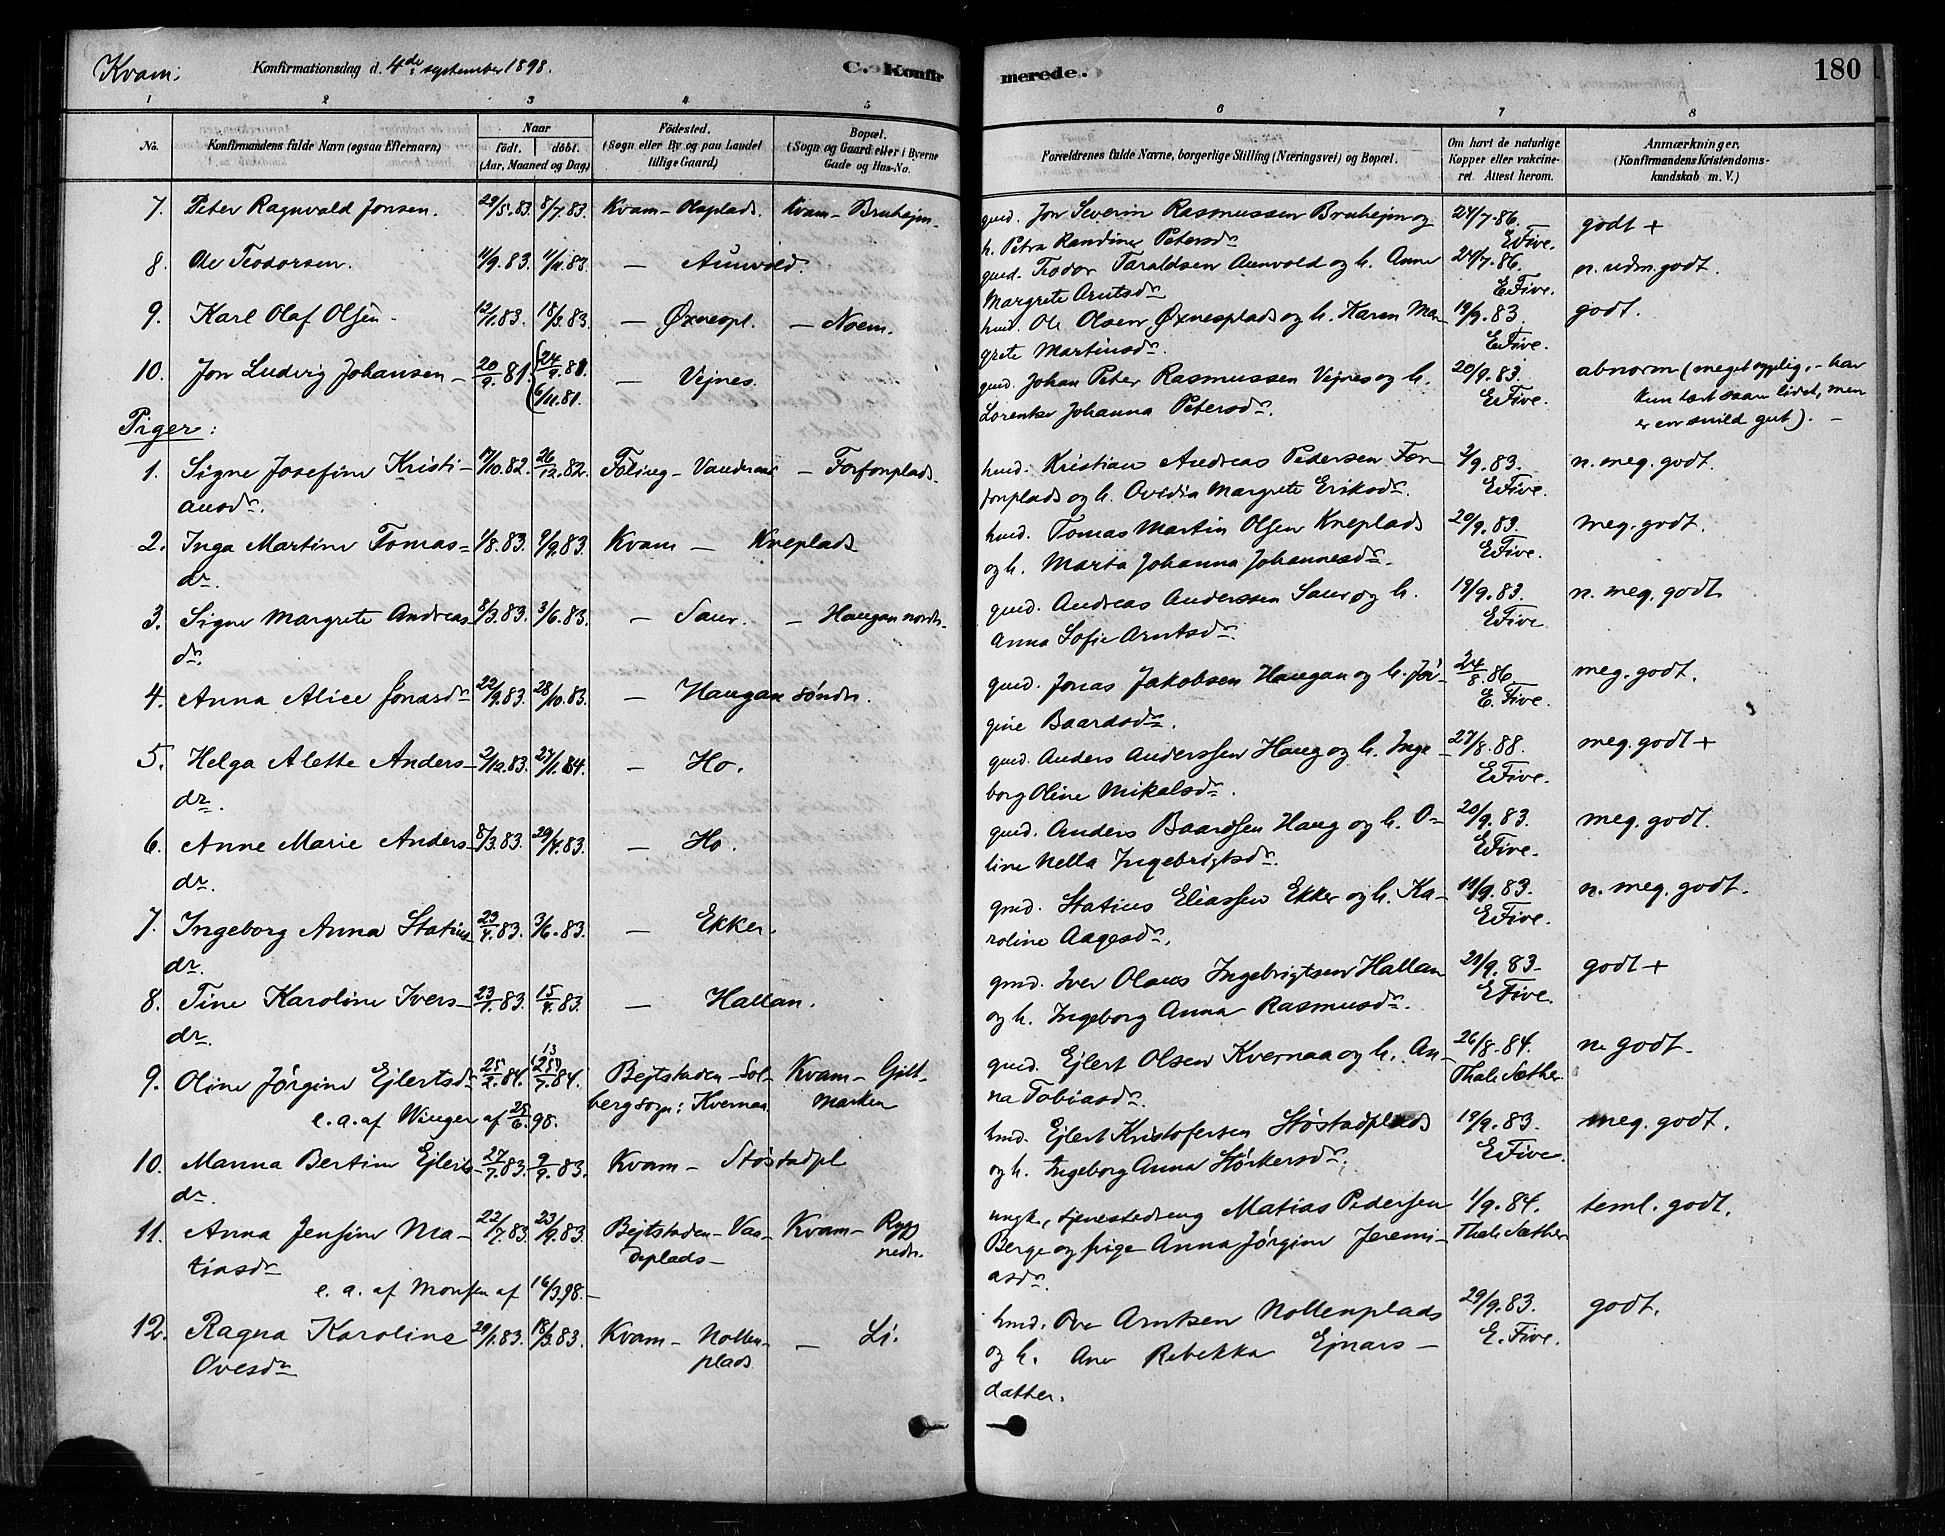 Kvam: Konfirmationsdag d. 4de september 1898. C. Konfirmerede. 180
1 2 3 4 5 6 7 8
No. Konfirmandens fulde Navn (ogsaa Efternavn) Naar födt. döbt. (Aar, Maaned og Dag) Födested. (Sogn eller By og paa Landet tillige Gaard.) Bopæl. (Sogn og Gaard eller i Byerne Gade og Hus-No. Forældrenes fulde Navne, borgerlige Stilling (Næringsvei) og Bopæl. Om havt de naturlige Kopper eller vakcineret. Attest herom. Anmærkninger. (Konfirmandens Kristendomskundskab m. V.)
7. Peter Ragnvald Jonsen. 29/5.83. 8/7.83. Kvam - Olsplads. Kvam - Bruhejm. gmd. Jon Severin Rasmussen Bruhejm og 24/7.86. godt +
h. Petra Randine Petersdr. E Five.
8. Ole Teodorsen. 11/9.83. 4/11.83. — Aunvold. gmd. Teodor Taraldsen Aunvold og h. Anne 24/7.86. n. udm. godt.
Margrete Arntsdr. E Five.
9. Karl Olaf Olsen. 12/1.83. 18/3.83. — Øxnespl. — Noem. hmd. Ole Olsen Øxnesplads og h. Karen Mar- 19/9.83. godt.
grete Martinsdr. E Five.
10. Jon Ludvig Johansen 20/9.81. 24/9.81 6/11.81. — Vejnes. gmd. Johan Peter Rasmussen Vejnes og h. 20/9.83. abnorm (meget sygelig, - har
Lorentze Johanna Petersdr. E Five. kun lært saare lidet, men
Piger: er en snild gut). -
1. Signe Josefine Kristi- 17/10.82. 26/12.82. Føling - Vandemo — Forfonplads. hmd. Kristian Andreas Pedersen For- 2/9.83. n. meg. godt.
ansdr. fonplads og h. Ovedia Margrete Eriksdr. E Five.
2. Inga Martine Tomas- 1/8.83. 9/9.83. Kvam — Kneplads hmd. Tomas Martin Olsen Kneplads 20/9.83. meg. godt.
dr. og h. Marta Johanna Johannesdr. E Five.
3. Signe Margrete Andreas- 8/3.83. 3/6.83. — Saur. — Haugan nordr. gmd. Andreas Anderssen Saur og h. 19/9.83. n. meg. godt.
dr. Anna Sofie Arntsdr. E Five
4. Anna Alice Jonasdr 22/9.83. 28/10.83. — Haugan söndr. gmd. Jonas Jakobsen Haugan og h. Jör- 24/8.86. meg. godt.
gine Baardsdr. E. Five.
5. Helga Alette Anders- 2/12.83. 27/1.84. — Ho. gmd. Anders Anderssen Haug og h. Inge- 27/8.88. meg. godt +
dr. borg Oline Mikalsdr. E Five.
6. Anne Marie Anders- 8/3.83. 29/4.83. — Ho. gmd. Anders Baardsen Haug og h. O- 20/9.83. meg. godt.
dr. line Nella Ingebrigtsdr. E Five.
7. Ingeborg Anna Statius- 23/4.83. 3/6.83. — Ekker. gmd. Statius Eliassen Ekker og h. Ka- 19/9.83. n. meg. godt.
dr. roline Aagesdr. E Five.
8. Tine Karoline Ivers- 23/1.83. 15/4.83. — Hallan. gmd. Iver Olaus Ingebrigtsen Hallan 29/9.83. godt +
dr. og h. Ingeborg Anna Rasmusdr. E Five.
9. Oline Jørgine Ejlertsdr. 25/2.84. 13/7.84. Bejtstaden - Sol- Kvam - Gilt- gmd. Ejlert Olsen Kvernaa og h. An- 26/8.84. n. godt.
e. a. af Winger af 25/6.98. bergsogn: Kvernaa marken na Tobiasdr. Thale Sæther.
10. Manna Bertine Ejlerts- 27/7.83. 9/9.83. Kvam - Støstadpl hmd. Ejlert Kristofersen Støstadplads 19/9.83. meg. godt.
dr. og h. Ingeborg Anna Størkersdr. E Five.
11. Anna Jensine Ma- 22/7.83. 23/9.83. Bejtstaden - Vaa- Kvam - Rygg ungk., tjenestedreng Matias Pedersen 1/9.84. teml. godt.
tiasdr deplads - nedr. Berge og pige Anna Jørgine Jeremi- Thale Sæther
e. a. af Monsen af 16/3.98. asdr.
12. Ragna Karoline 29/1.83. 18/3.83 Kvam - Nollen- — Li. hmd. Ove Arntsen Nollenplads 29/9.83. godt.
Ovesdr plads og h. Ane Rebekka Ejnars- E. Five.
datter.